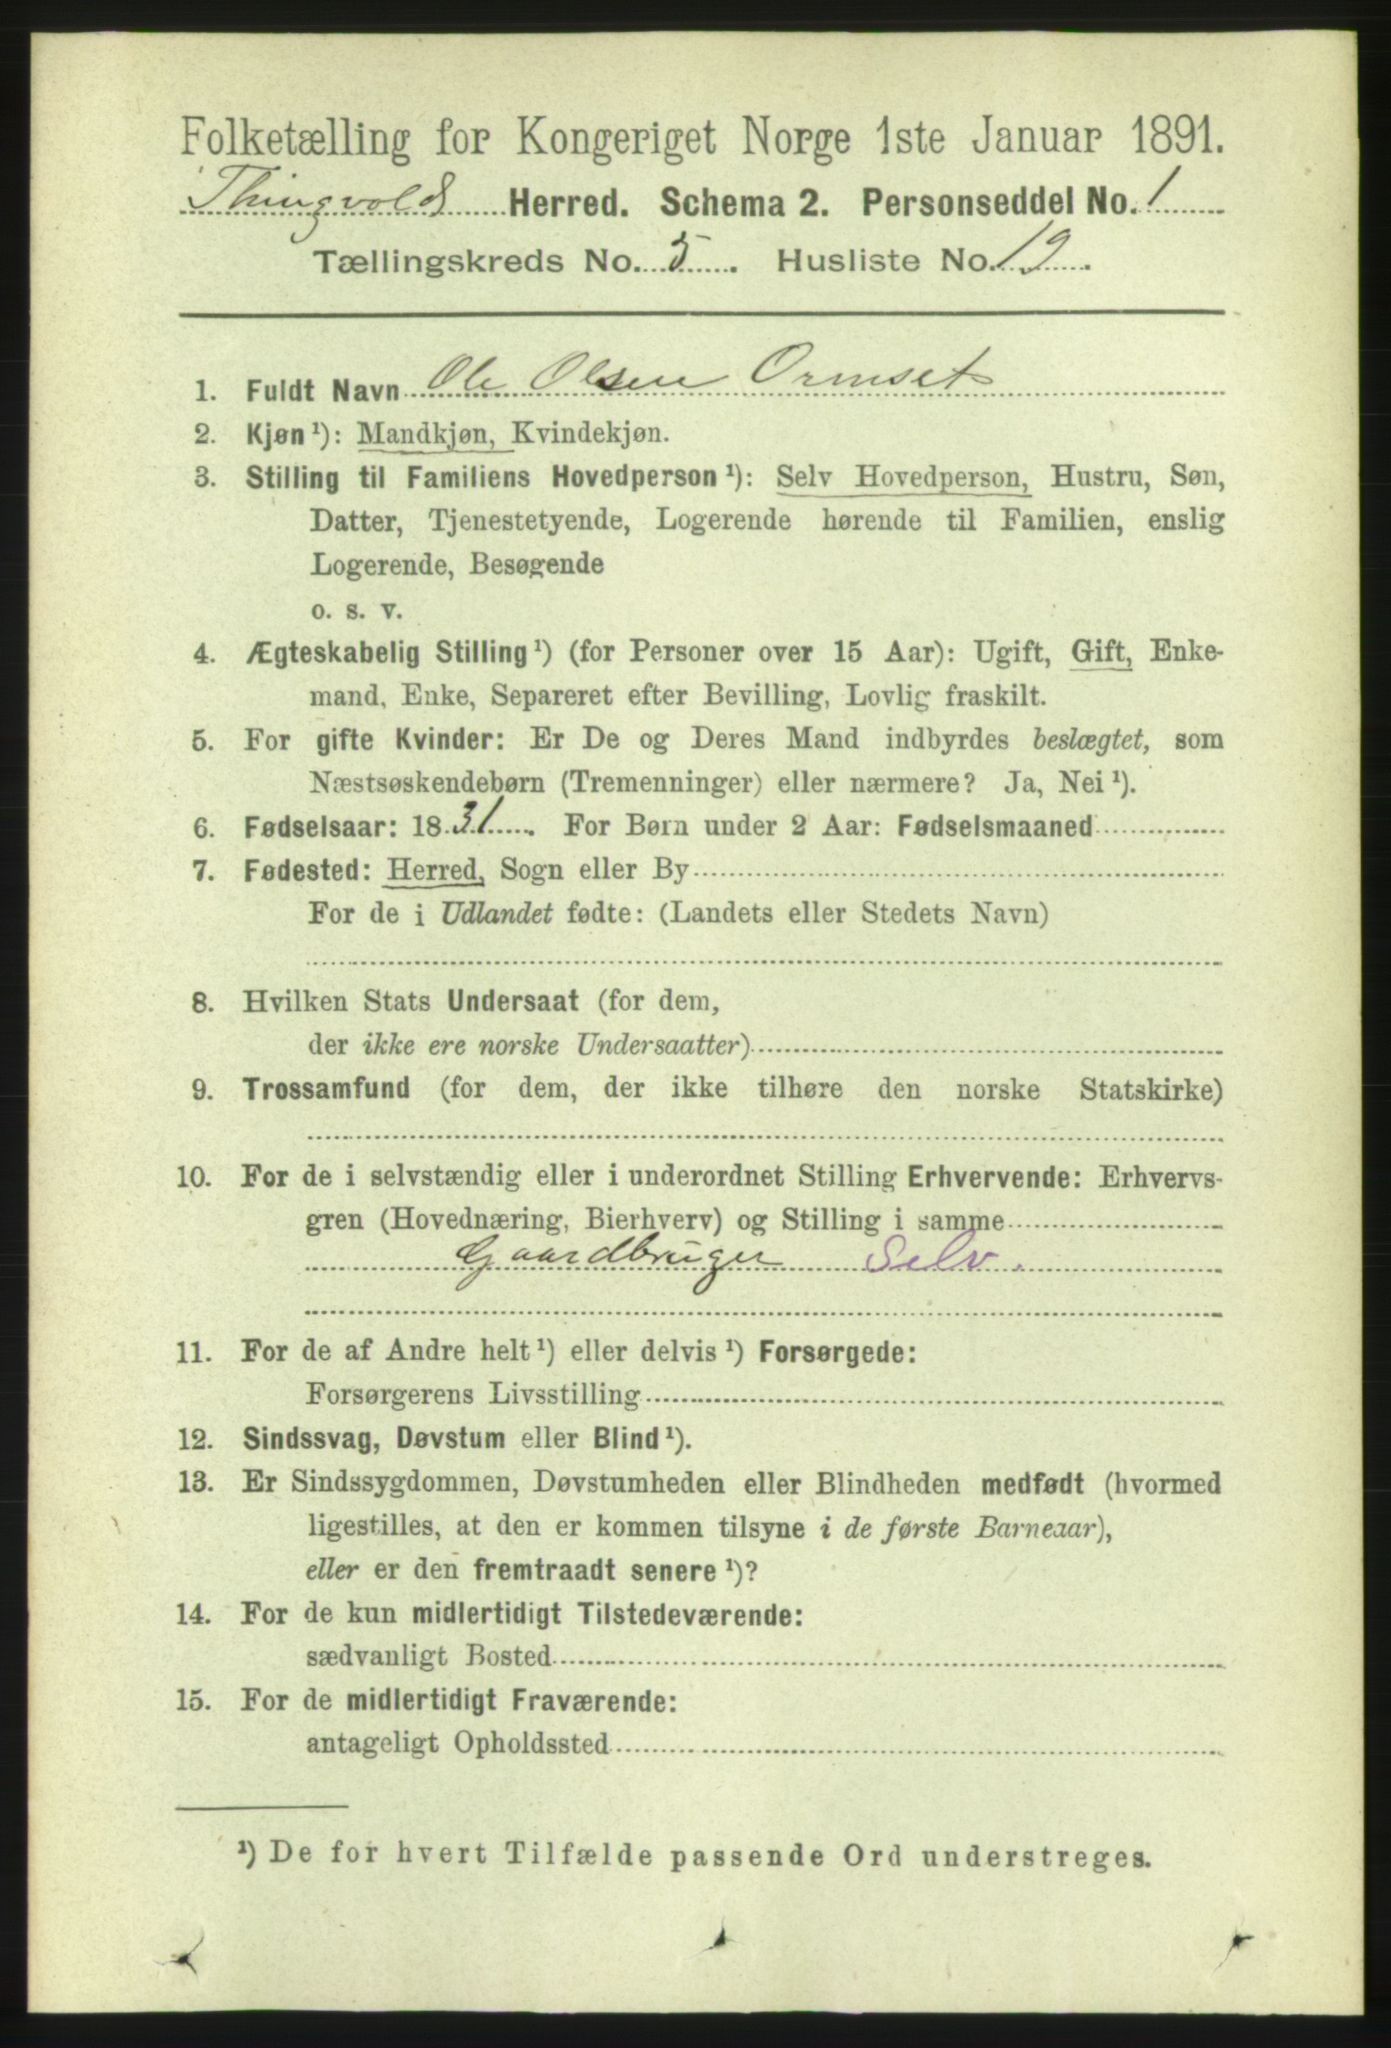 Folketælling for Kongeriget Norge 1ste Januar 1891.
Thingvolds Herred. Schema 2. Personseddel No. 1
Tællingskreds No. 5. Husliste No. 19.
1. Fuldt Navn Ole Olsen Ormset
2. Kjøn¹): Mandkjøn, Kvindekjøn.
3. Stilling til Familiens Hovedperson¹): Selv Hovedperson, Hustru, Søn,
Datter, Tjenestetyende, Logerende hørende til Familien, enslig
Logerende, Besøgende
o. s. v.
4. Ægteskabelig Stilling¹) (for Personer over 15 Aar): Ugift, Gift, Enke-
mand, Enke, Separeret efter Bevilling, Lovlig fraskilt.
5. For gifte Kvinder: Er De og Deres Mand indbyrdes beslægtet, som
Næstsøskendebørn (Tremenninger) eller nærmere? Ja, Nei¹).
6. Fødselsaar: 1831. For Børn under 2 Aar: Fødselsmaaned
7. Fødested: Herred, Sogn eller By
For de i Udlandet fødte: (Landets eller Stedets Navn)
8. Hvilken Stats Undersaat (for dem,
der ikke ere norske Undersaatter)
9. Trossamfund (for dem, der ikke tilhøre den norske Statskirke)
10. For de i selvstændig eller i underordnet Stilling Erhvervende: Erhvervs-
gren (Hovednæring, Bierhverv) og Stilling i samme
Gaardbruger Selv.
11. For de af Andre helt¹) eller delvis¹) Forsørgede:
Forsørgerens Livsstilling
12. Sindssvag, Døvstum eller Blind¹).
13. Er Sindssygdommen, Døvstumheden eller Blindheden medfødt (hvormed
ligestilles, at den er kommen tilsyne i de første Barneaar),
eller er den fremtraadt senere¹)?
14. For de kun midlertidigt Tilstedeværende:
sædvanligt Bosted
15. For de midlertidigt Fraværende:
antageligt Opholdssted
¹) De for hvert Tilfælde passende Ord understreges.